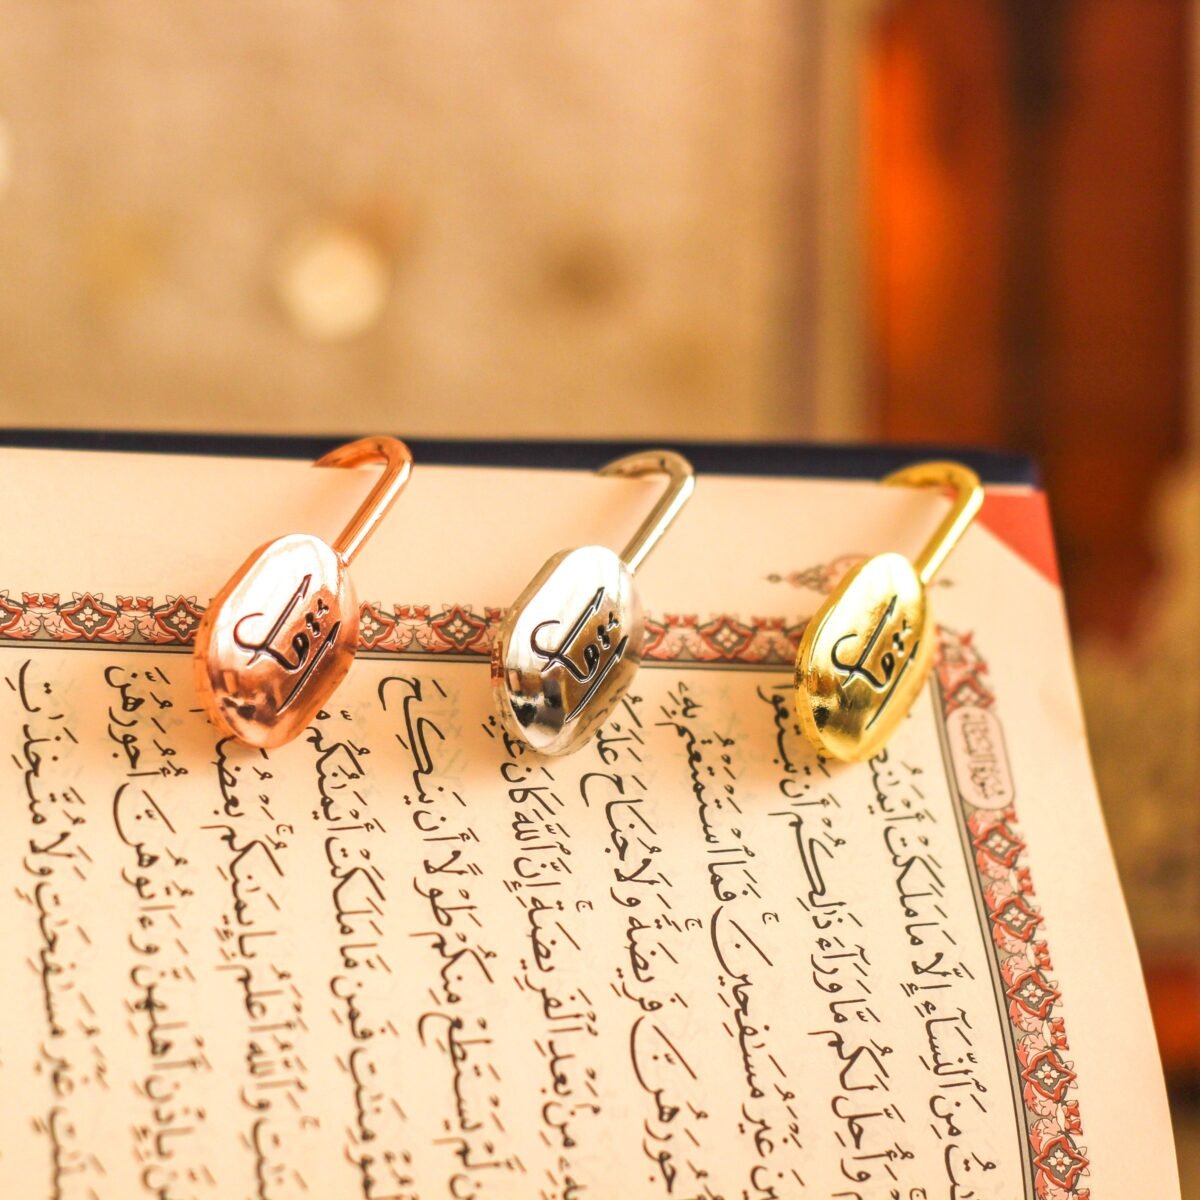 سُورَةُ النِّسَاءِ
مِنَ ٱلنِّسَآءِ إِلَّا مَا مَلَكَتْ
وَأُحِلَّ لَكُم مَّا وَرَآءَ ذَٰلِكُمْ أَن تَبْتَغُوا۟
غَيْرَ مُسَٰفِحِينَ ۚ فَمَا ٱسْتَمْتَعْتُم بِهِۦ
أُجُورَهُنَّ فَرِيضَةً ۚ وَلَا جُنَاحَ
بِهِۦ مِنۢ بَعْدِ ٱلْفَرِيضَةِ ۚ إِنَّ ٱللَّهَ كَانَ
لَّمْ يَسْتَطِعْ مِنكُمْ طَوْلًا أَن يَنكِحَ
فَمِن مَّا مَلَكَتْ أَيْمَٰنُكُم
وَٱللَّهُ أَعْلَمُ بِإِيمَٰنِكُم ۚ
بِإِذْنِ أَهْلِهِنَّ وَءَاتُوهُنَّ أُجُورَهُنَّ
غَيْرَ مُسَٰفِحَٰتٍ وَلَا مُتَّخِذَٰتِ